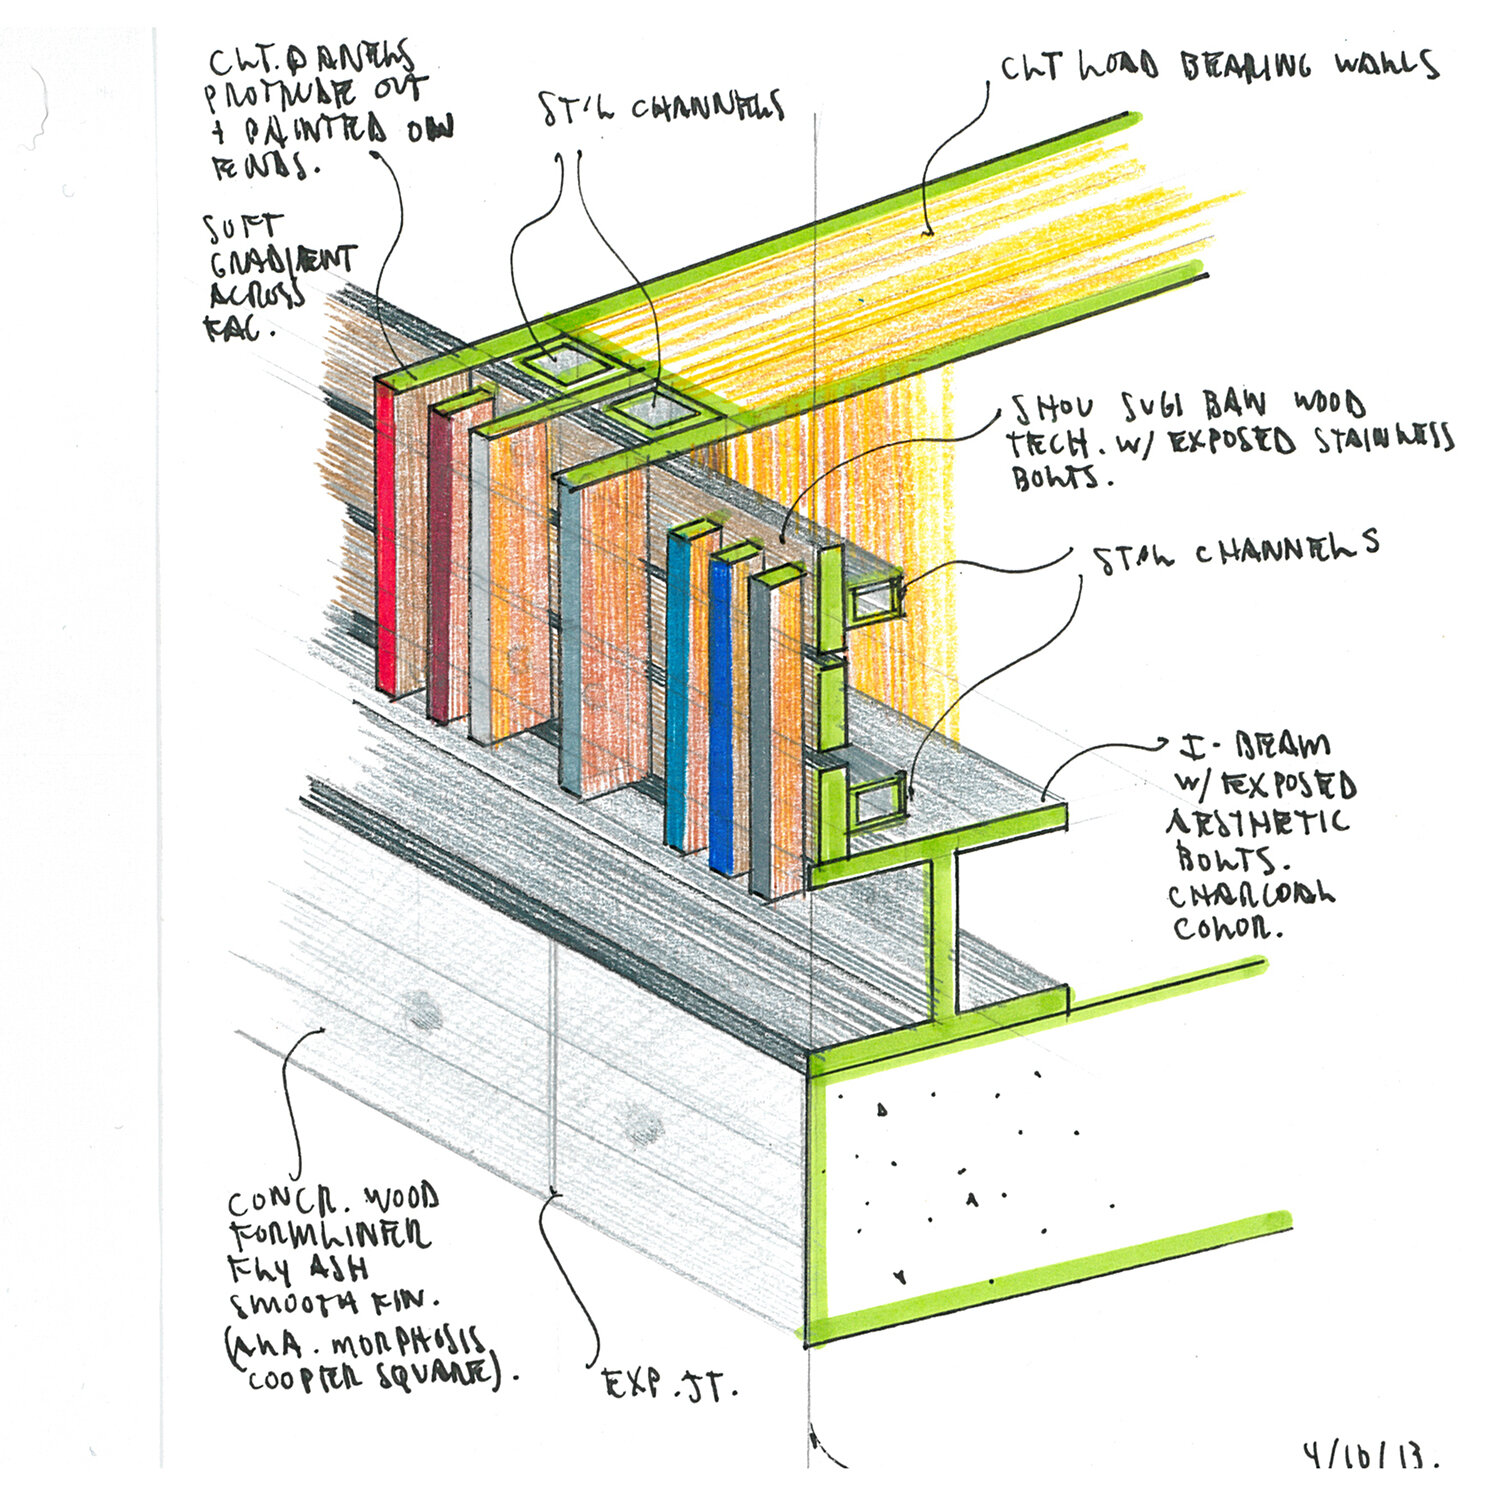 CLT. PANELS
PROTRUDE OUT
+ PAINTED ON
ENDS.
SOFT
GRADIENT
ACROSS
FAC.
ST'L CHANNELS
CLT LOAD BEARING WALLS
SHOU SUGI BAN WOOD
TECH. W/ EXPOSED STAINLESS
BOLTS.
ST'L CHANNELS
I-BEAM
W/ EXPOSED
AESTHETIC
BOLTS.
CHARCOAL
COLOR.
CONCR. WOOD
FORMLINER
FLY ASH
SMOOTH FIN.
(AKA. MORPHOSIS
COOPER SQUARE).
EXP. JT.
4/10/13.